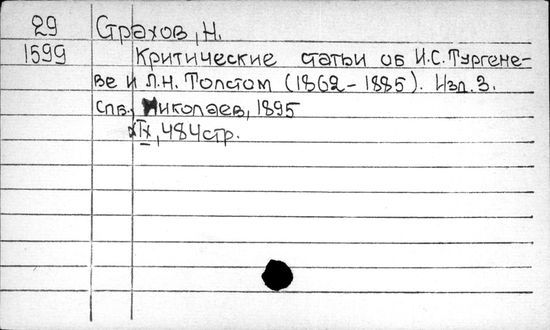 29 Страхов, Н.
1599 Критические статьи об И.С. Тургене-
ве и Л.Н. Толстом (1862-1885). Изд. 3.
Спб., Николаев, 1895
484 стр.